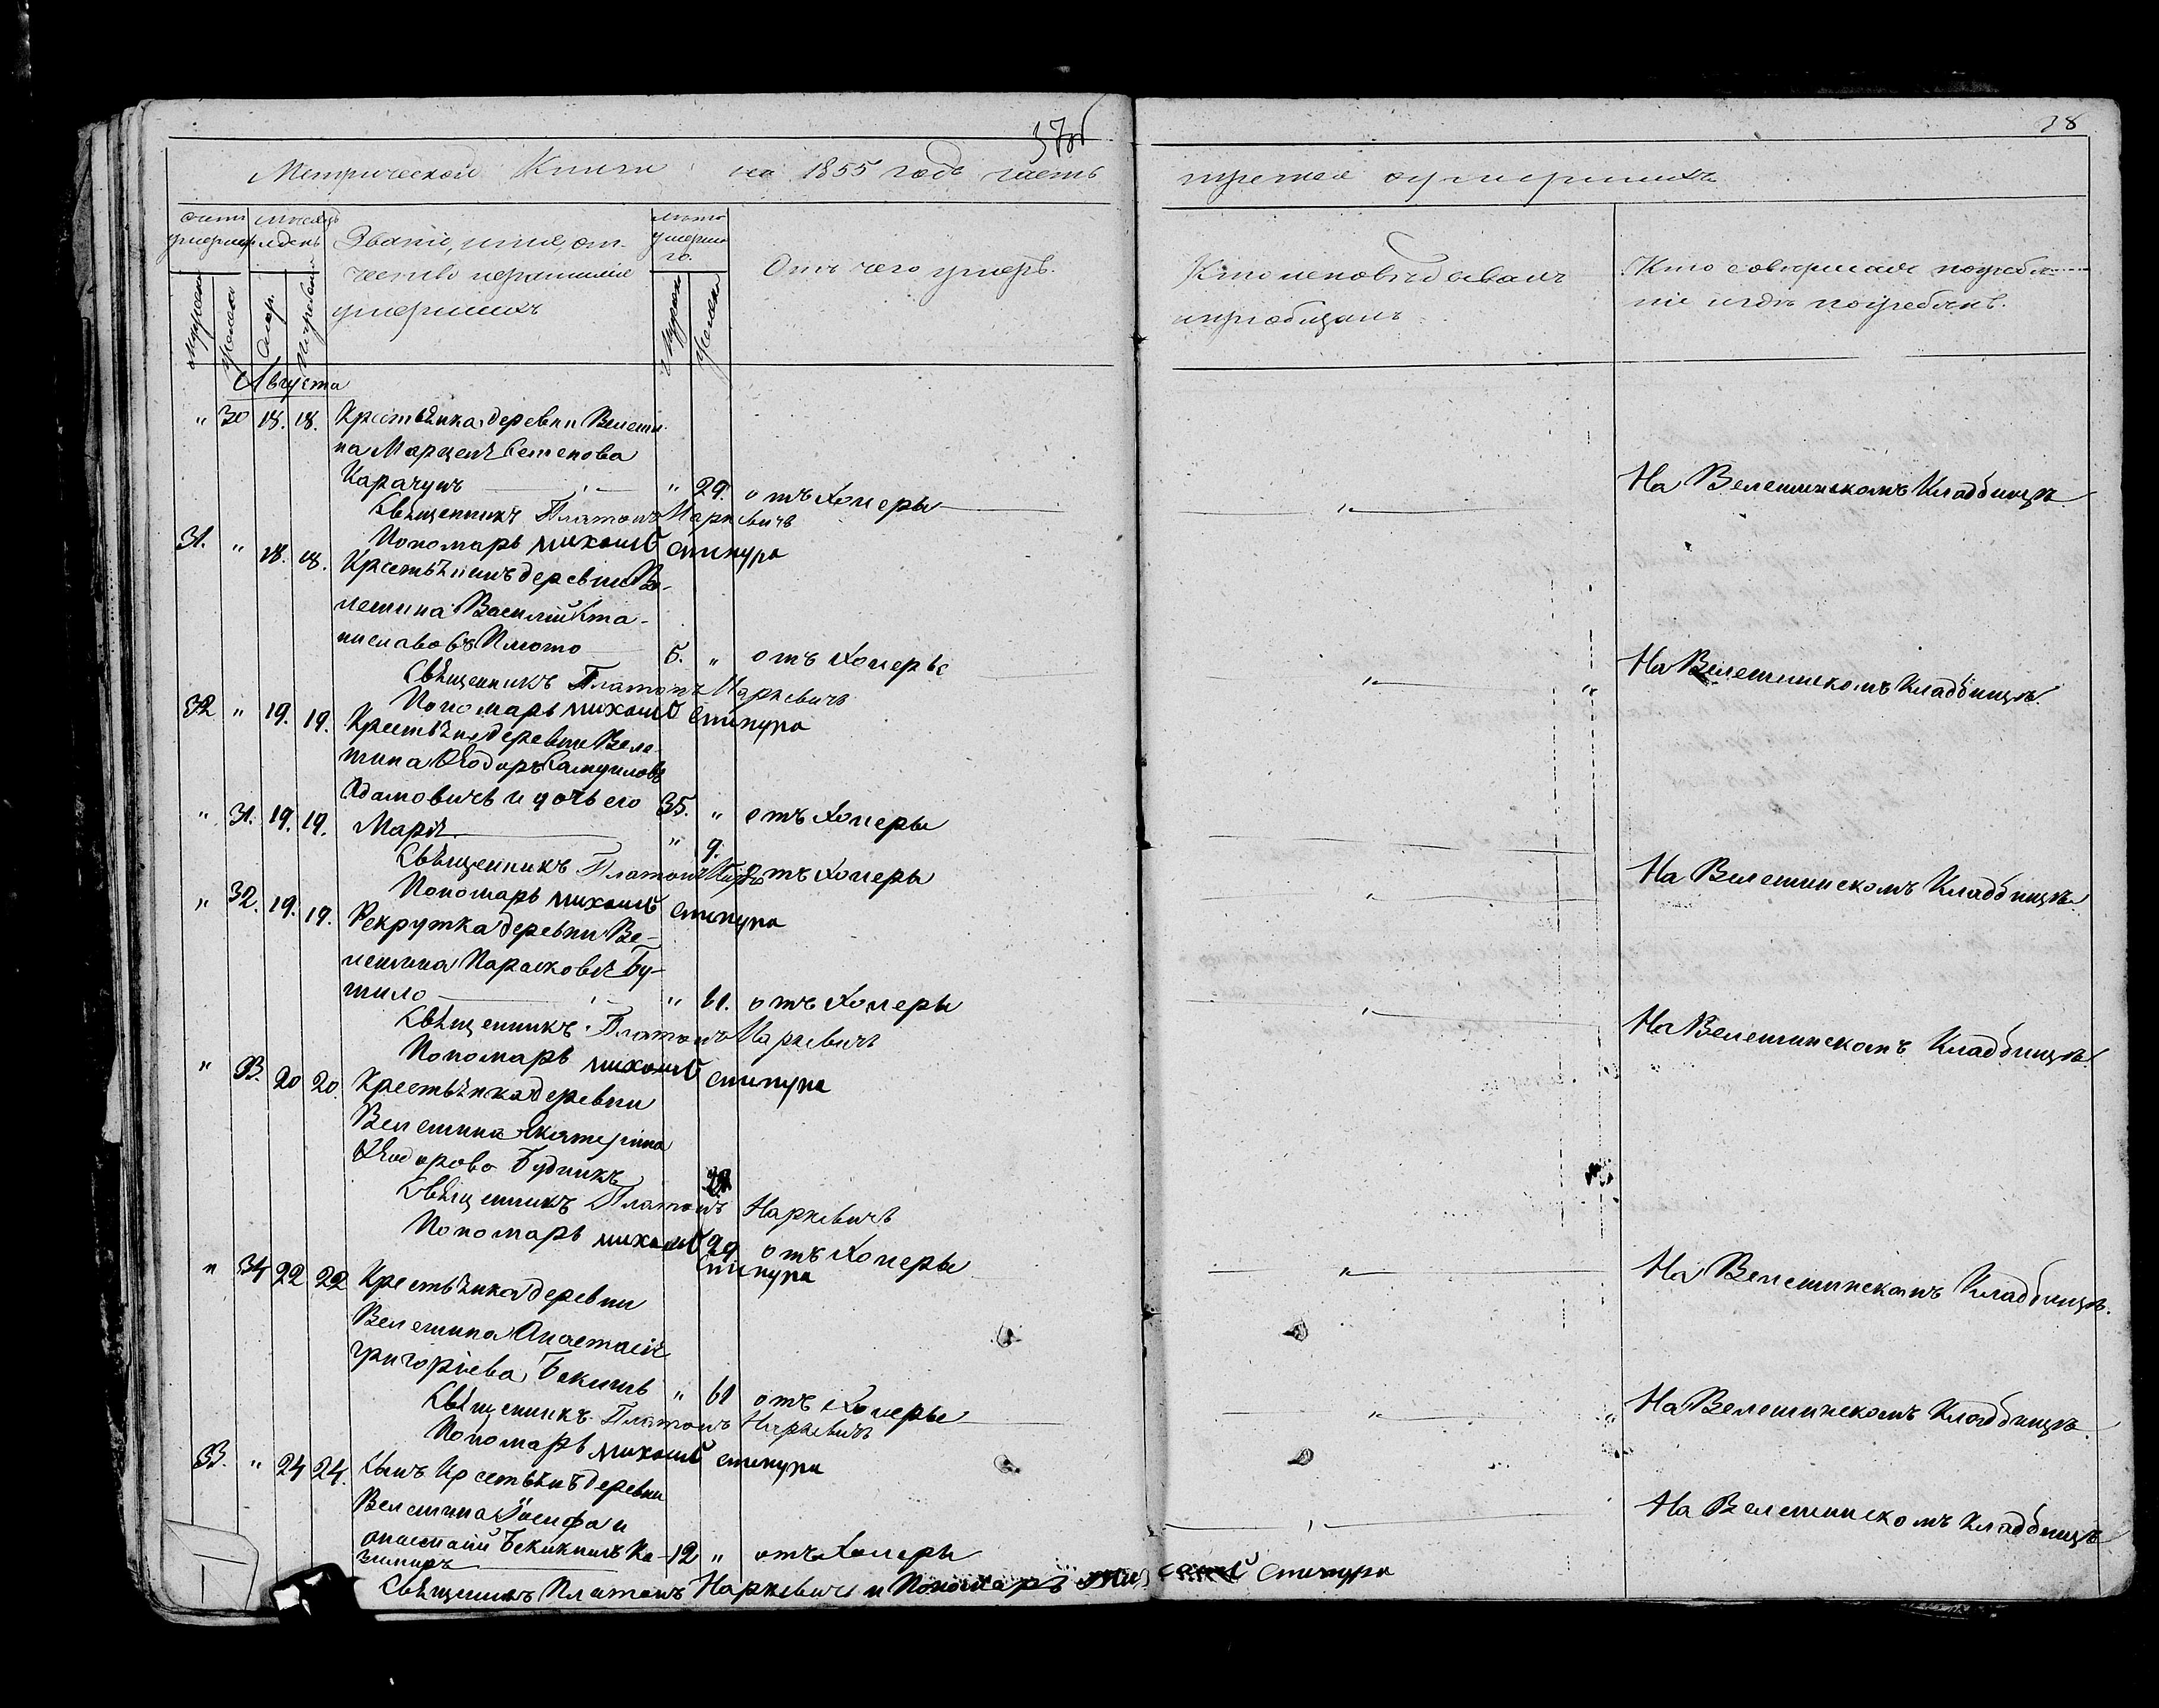 37об
38
Метрической Книги на 1855 годъ часть
третья о умершихъ
Счетъ умершихъ
Месяцъ и день
Званіе, имя, от-
чество и фамилія
умершихъ
Лѣта умершаго
Отъ чего умеръ.
Кто исповѣдывалъ
и пріобщалъ
Кто совершалъ погребе-
ніе и гдѣ погребенъ.
мужеска
женска
Смер.
Погребенія
Мужеска
Женска
Августа
" 30 18. 18. Крестьянка деревни Велеши-
на Марцеля Семенова
Карачунъ " 29. отъ Холеры " На Велешинскомъ Кладбищѣ
Священникъ Платонъ Наркевичъ
Пономарь Михаилъ Стипура
31. " 18. 18. Крестьянинъ деревни Ве-
лешина Василій Ста-
ниславовъ Плюто 5. " отъ Холеры " На Велешинскомъ Кладбищѣ.
Священникъ Платонъ Наркевичъ
Пономарь Михаилъ Стипура
32 " 19. 19. Крестьянинъ деревни Веле-
шина Ѳеодоръ Самуиловъ
Адамовичъ и дочь его 35. " отъ Холеры
" 31. 19. 19. Марія " 9. отъ Холеры " На Велешинскомъ Кладбищѣ
Священникъ Платонъ
Пономарь Михаилъ Стипура
" 32. 19. 19. Рекрутка деревни Ве-
лешина Парасковія Бу-
шило " 61. отъ Холеры " На Велешинскомъ Кладбищѣ
Священникъ Платонъ Наркевичъ
Пономарь Михаилъ Стипура
" 33. 20 20. Крестьянка деревни
Велешина Екатерина
Ѳеодорова Будникъ
Священникъ Платонъ Наркевичъ
Пономарь Михаилъ Стипура
29 отъ Холеры " На Велешинскомъ Кладбищѣ.
" 34 22 22 Крестьянка деревни
Велешина Анастасія
Григорьева Бекишъ " 61 отъ Холеры " На Велешинскомъ Кладбищѣ
Священникъ Платонъ Наркевичъ
Пономарь Михаилъ Стипура
33. " 24 24. Сынъ Крестьянъ деревни
Велешина Іосифа и
Анастасіи Бекишъ Ка- 12 " отъ Холеры " На Велешинскомъ Кладбищѣ
зимиръ
Священникъ Платонъ Наркевичъ и Пономарь Михаилъ Стипура